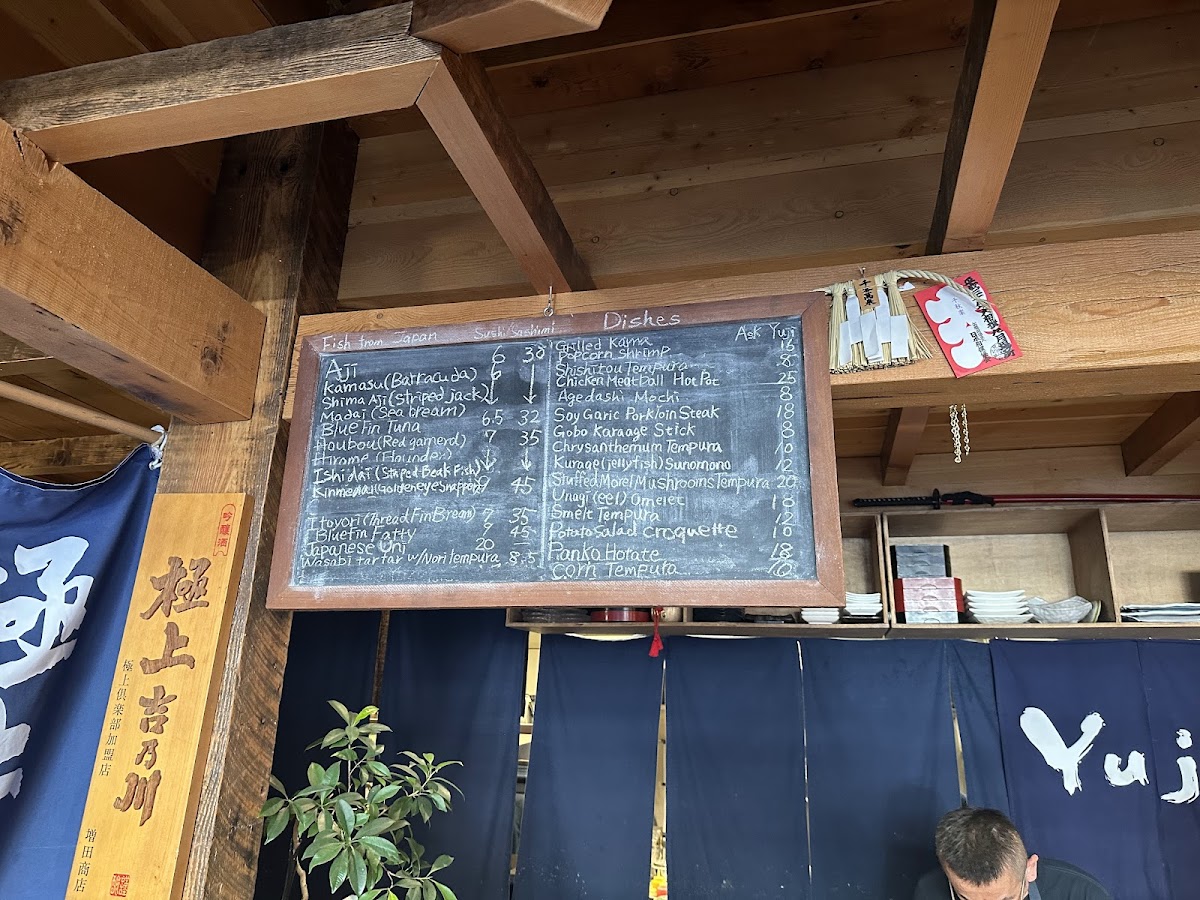 Fish from Japan Sushi Sashimi
Aji 6 30
Kamasu (Barracuda) 6
Shima Aji (Striped jack)
Madai (Sea bream) 6.5 32
Blue Fin Tuna 7 35
Houbou (Red garnerd)
Hirame (Flounder)
Ishi Dai (Striped Beak Fish)
Kinmedai (Goldeneye Snapper) 9 45
Itoyori (Thread Fin Bream) 7 35
Bluefin Fatty 9 45
Japanese Uni 20
Wasabi tartar w/Nori tempura 8.5
Dishes
Grilled Kama Ask Yuji
Popcorn Shrimp 16
Shishitou Tempura 8
Chicken Meatball Hot Pot 25
Agedashi Mochi 8
Soy Garic Porkloin Steak 18
Gobo Karaage Stick 8
Chrysanthemum Tempura 10
Kurage (jellyfish) Sunomono 12
Stuffed Morel Mushrooms Tempura 20
Unagi (eel) Omelet
Smelt Tempura 12
Potato Salad Croquette 10
Panko Hotate 18
Corn Tempura
吟醸酒
極上吉乃川
極上倶楽部加盟店
増田商店
千客萬来
Yuj